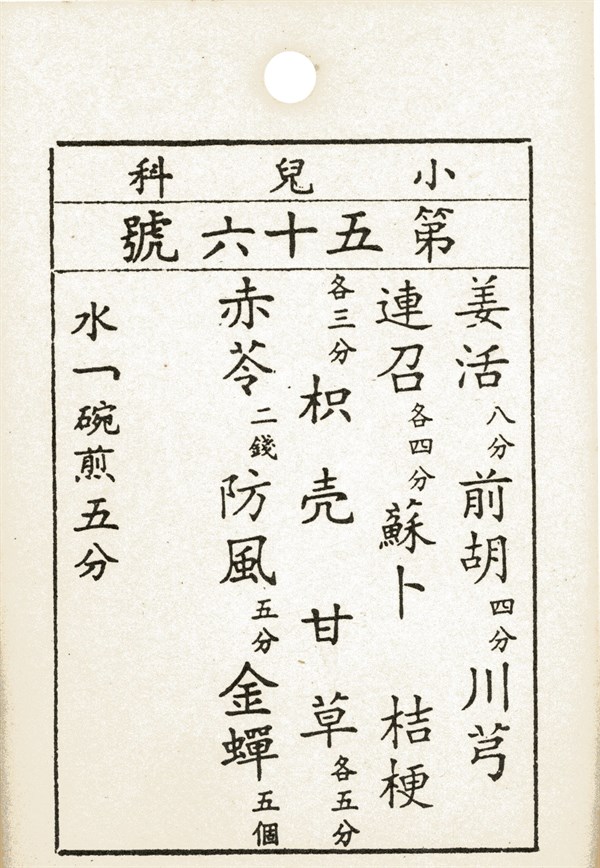 小兒科
第五十六號
姜活八分前胡四分川芎
連召各四分蘇卜桔梗
各三分枳壳甘草各五分
赤苓二錢防風五分金蟬五個
水一碗煎五分